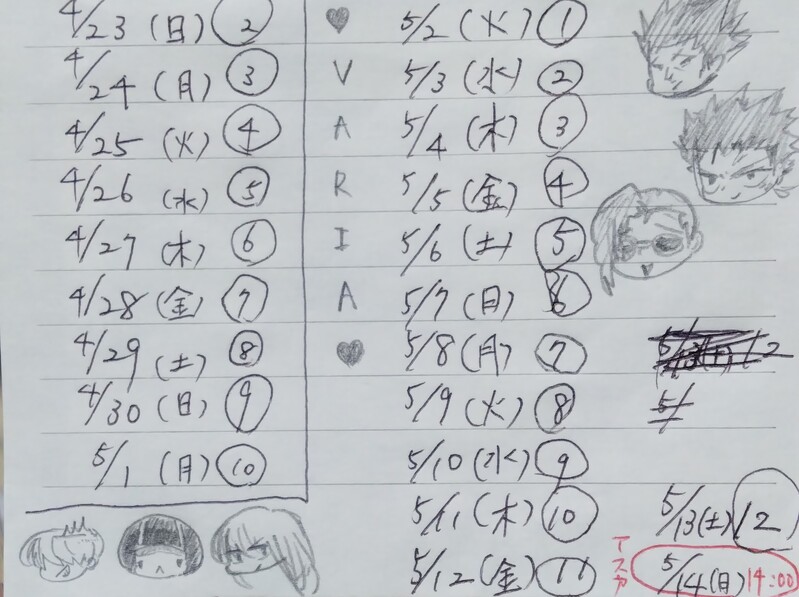 4/23 (日) 2
4/24 (月) 3
4/25 (火) 4
4/26 (水) 5
4/27 (木) 6
4/28 (金) 7
4/29 (土) 8
4/30 (日) 9
5/1 (月) 10
♥
V
A
R
I
A
♥
5/2 (火) 1
5/3 (水) 2
5/4 (木) 3
5/5 (金) 4
5/6 (土) 5
5/7 (日) 6
5/8 (月) 7
5/9 (火) 8
5/10 (水) 9
5/11 (木) 10
5/12 (金) 11
5/13 (土) 12
アスカ
5/14 (日) 14:00